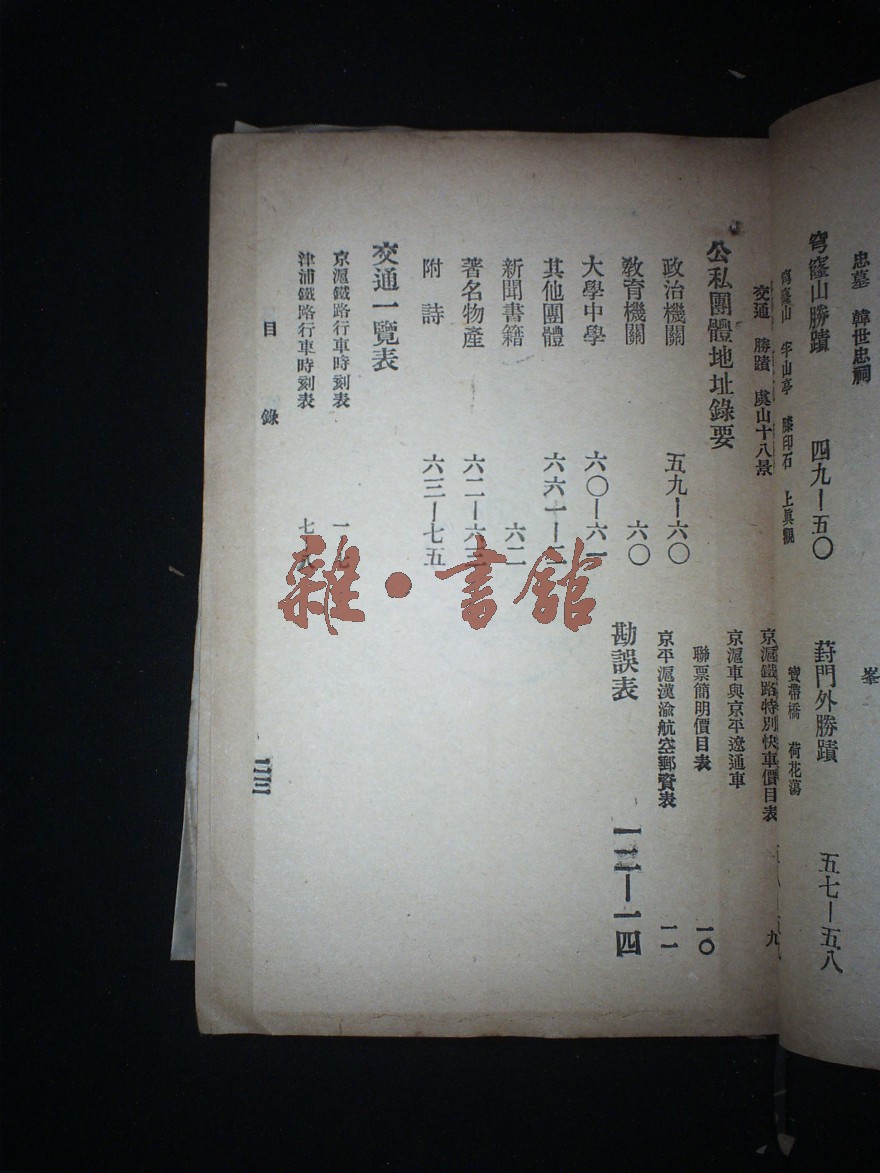 忠墓 韓世忠祠
峯
穹窿山勝蹟 四九—五〇
穹窿山 牢山亭 膝印石 上眞觀
葑門外勝蹟 五七—五八
寶帶橋 荷花蕩
交通 勝蹟 虞山十八景
公私團體地址錄要
政治機關 五九—六〇
敎育機關 六〇
大學中學 六〇—六一
其他團體
新聞書籍 六二
著名物產 六二—六三
附詩 六三—七五
交通一覽表
京滬鐵路行車時刻表
津浦鐵路行車時刻表
京滬鐵路特別快車價目表 九
京滬車與京平遼通車
聯票簡明價目表 一〇
京平滬漢渝航空郵資表 一一
勘誤表
目錄
雜·書館